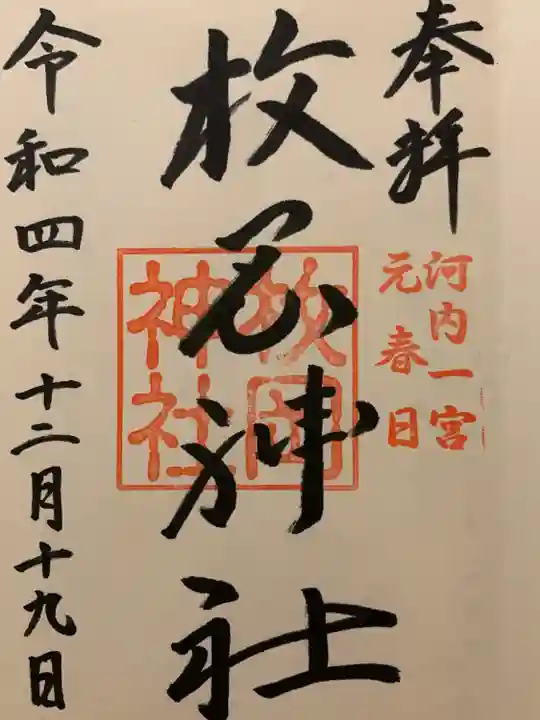 奉拜
河内一宮
元春日
枚岡神社
枚岡
神社
令和四年十二月十九日